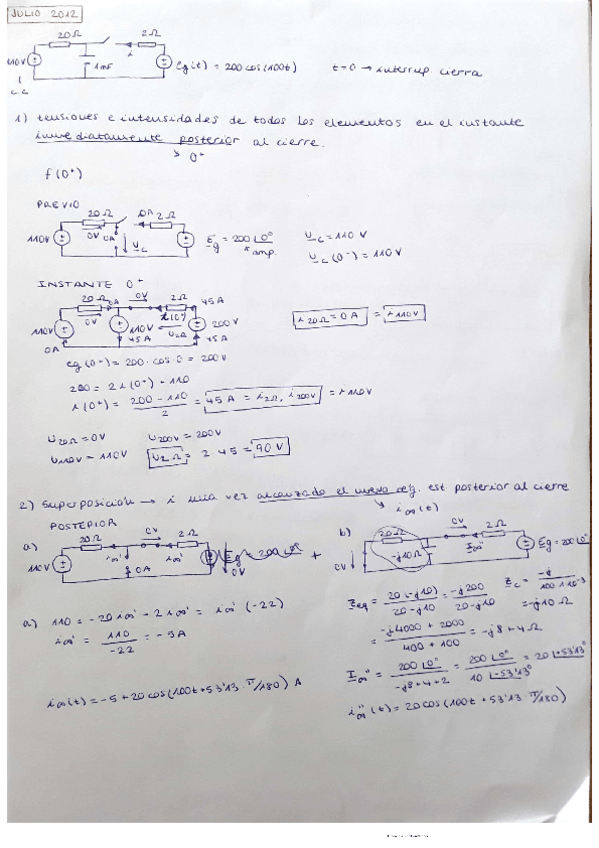 JULIO 2012
20Ω 2Ω
110V 1mF i eg(t) = 200 cos(100t) t=0 → interrup. cierra
C.C
1) tensiones e intensidades de todos los elementos en el instante
inmediatamente posterior al cierre.
↘ 0⁺
f(0⁺)
PREVIO
20Ω 0A 2Ω
110V 0V 0A U_C E_g = 200 ∠0° U_C = 110 V
amp. U_C(0⁻) = 110V
INSTANTE 0⁺
20Ω 0A 0V 2Ω 45A
110V 0V 110V i(0⁺) U_2Ω 200V i_20Ω = 0A = i_110V
0A 45A 45A
eg(0⁺) = 200 · cos 0 = 200V
200 = 2 i(0⁺) + 110
i(0⁺) = (200 - 110)/2 = 45A = i_2Ω, i_200V = i_110V
U_20Ω = 0V U_200V = 200V
U_110V = 110V U_2Ω = 2·45 = 90V
2) Superposición → i una vez alcanzado el nuevo reg. est. posterior al cierre
↘ i∞(t)
POSTERIOR
a) 20Ω 0V 2Ω
110V i∞' 0A i∞' Eg = 200 ∠0° 0V +
b) 20Ω 0V 2Ω
0V -j10Ω I∞'' Eg = 200∠0°
a) 110 = -20 i∞' - 2 i∞' = i∞' (-22)
i∞' = 110/-22 = -5A
i∞(t) = -5 + 20 cos(100t + 53'13 · π/180) A
Zeq = 20(-j10)/(20 - j10) = -j200/(20 - j10) Z_C = -j/(100·10⁻³)
= -j10 Ω
= (-j4000 + 2000)/(400 + 100) = -j8 + 4 Ω
I∞'' = 200∠0°/(-j8 + 4 + 2) = 200∠0°/(10∠-53'13°) = 20∠+53'13°
i∞''(t) = 20 cos(100t + 53'13 · π/180)